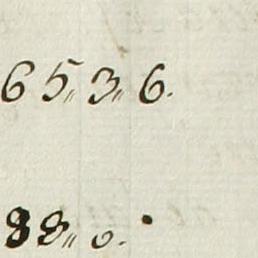 65〃3〃6.
88〃0.